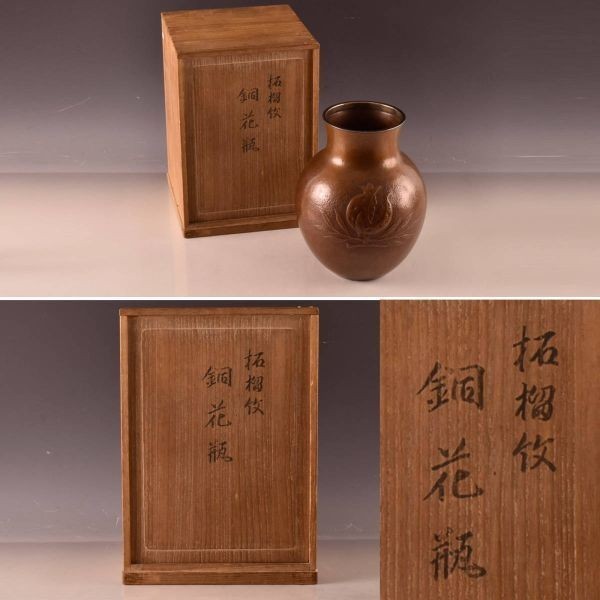 柘榴紋
銅花瓶
柘榴紋
銅花瓶
柘榴紋
銅花瓶